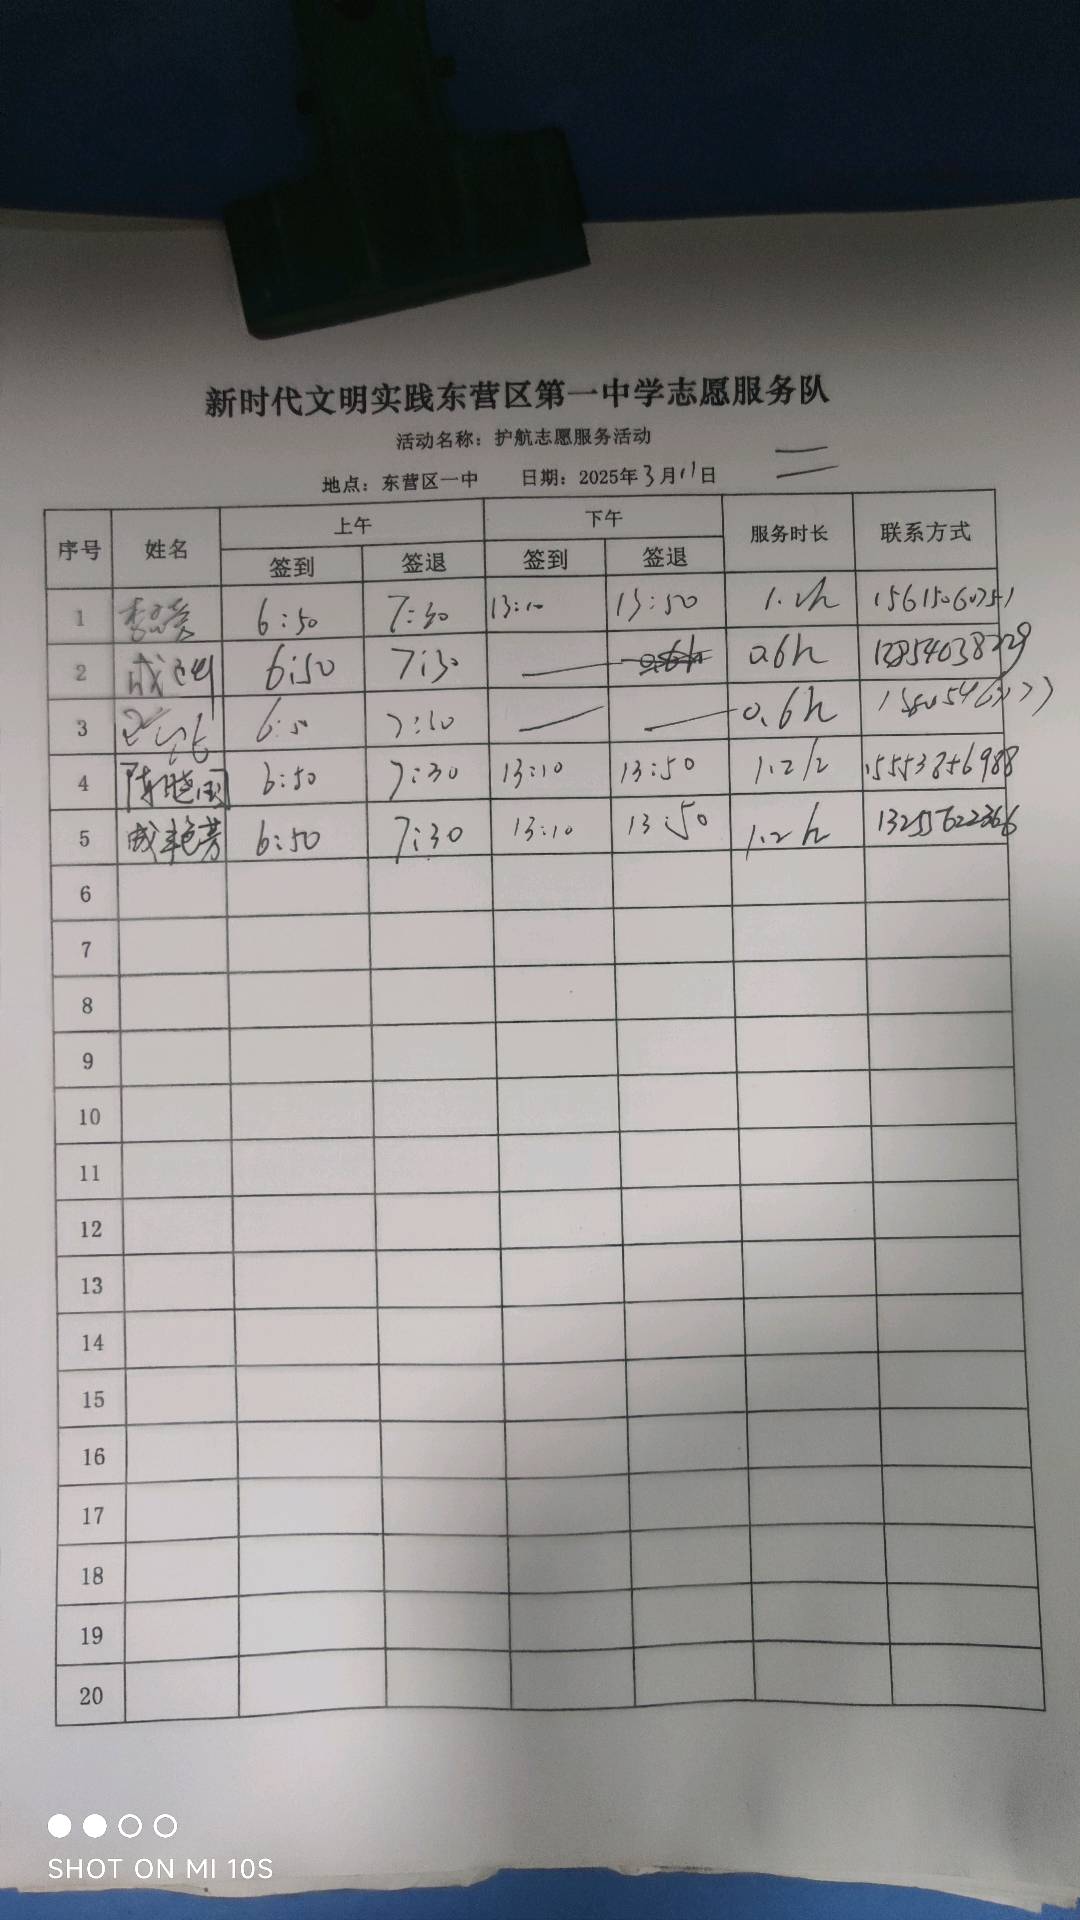 新时代文明实践东营区第一中学志愿服务队
活动名称：护航志愿服务活动
地点：东营区一中 日期：2025年3月11日 二
序号 姓名 上午 下午 服务时长 联系方式
签到 签退 签到 签退
1 6:50 7:30 13:10 13:50 1.2h
2 成 6:50 7:30 — — 0.6h
3 6:50 7:30 — — 0.6h
4 陈晓国 6:50 7:30 13:10 13:50 1.2h 15553856988
5 成艳芳 6:50 7:30 13:10 13:50 1.2h 13255622366
6
7
8
9
10
11
12
13
14
15
16
17
18
19
20
SHOT ON MI 10S